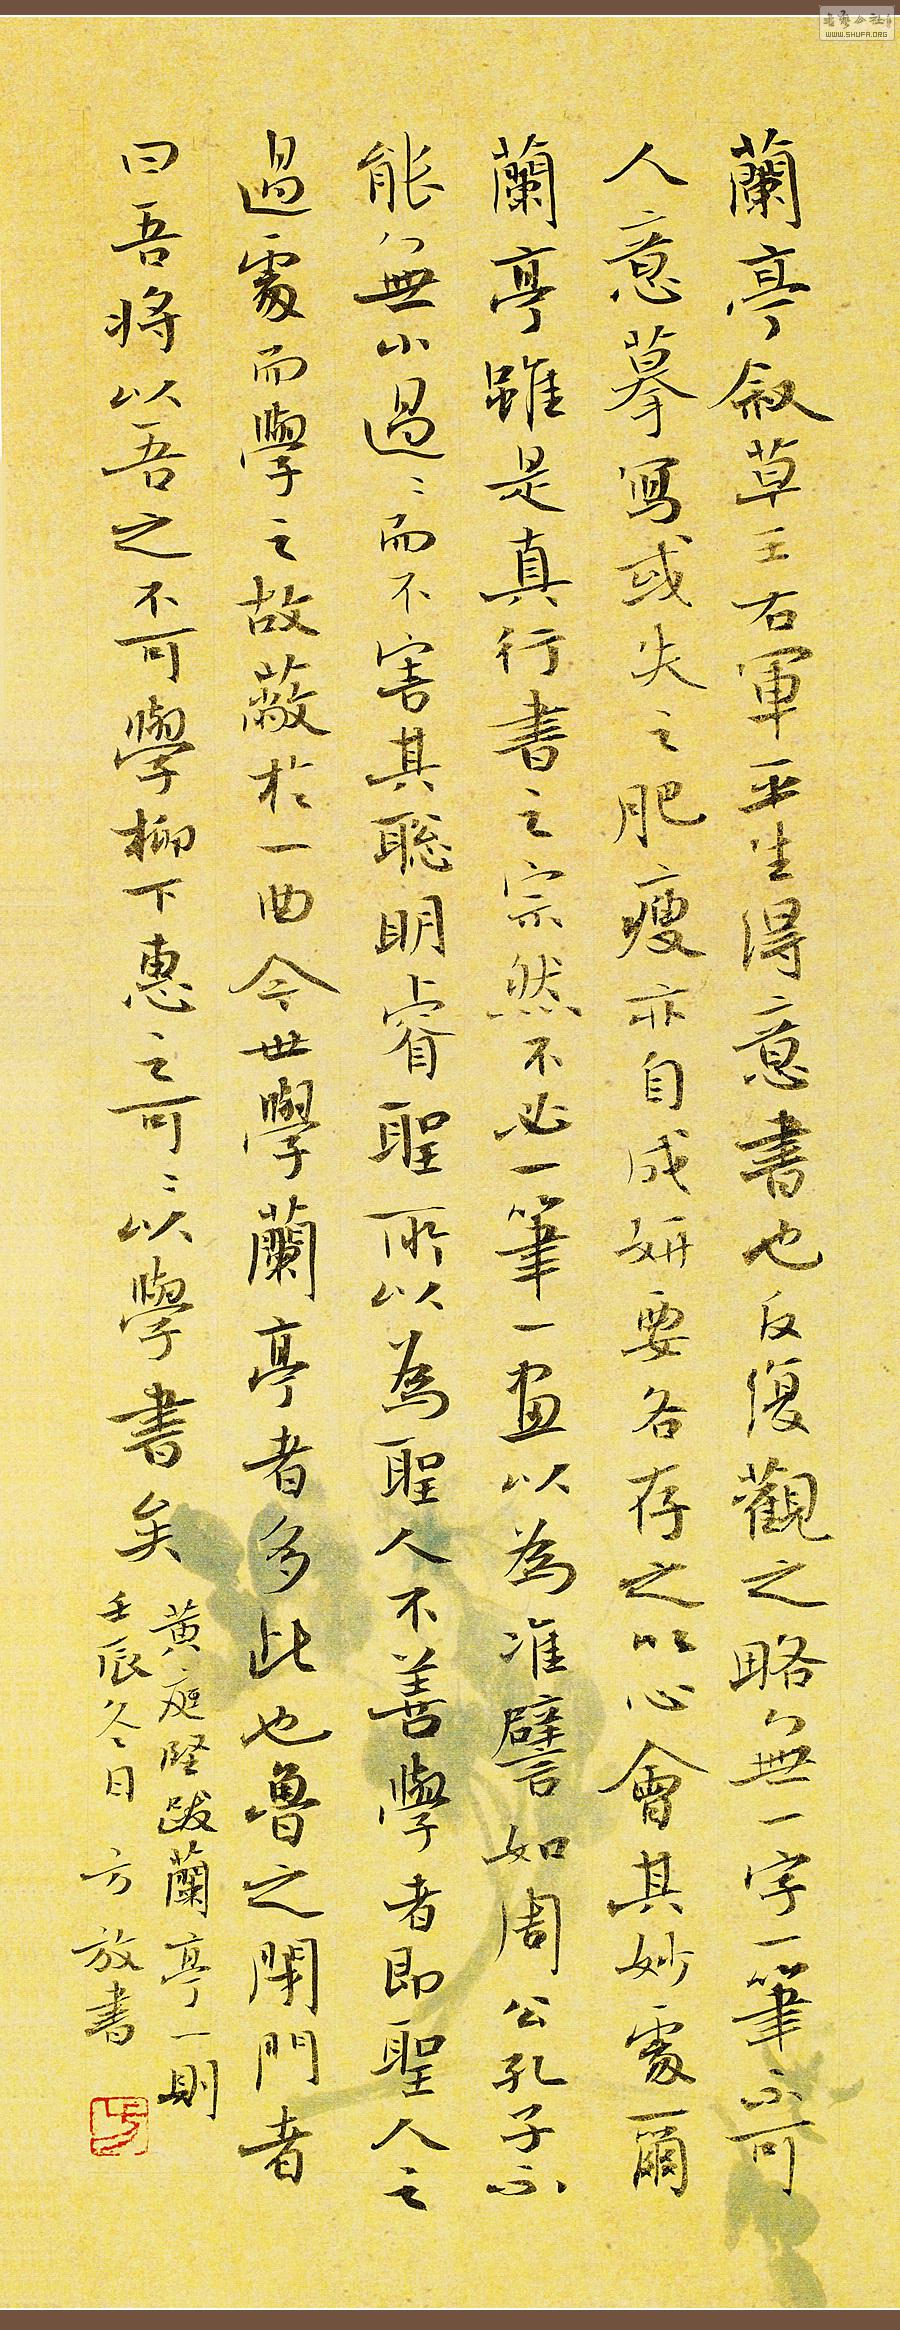 蘭亭敘草王右軍平生得意書也反復觀之略無一字一筆不可
人意摹寫或失之肥瘦亦自成妍要各存之以心會其妙處爾
蘭亭雖是真行書之宗然不必一筆一畫以為准譬如周公孔子不
能無小過過而不害其聰明睿聖所以為聖人不善學者即聖人之
過處而學之故蔽於一曲今世學蘭亭者多此也魯之閉門者
曰吾將以吾之不可學柳下惠之可可以學書矣
黃庭堅跋蘭亭一則
壬辰冬日方放書
WWW.SHUFA.ORG